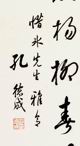 楊柳春
惜冰先生雅令
孔德成